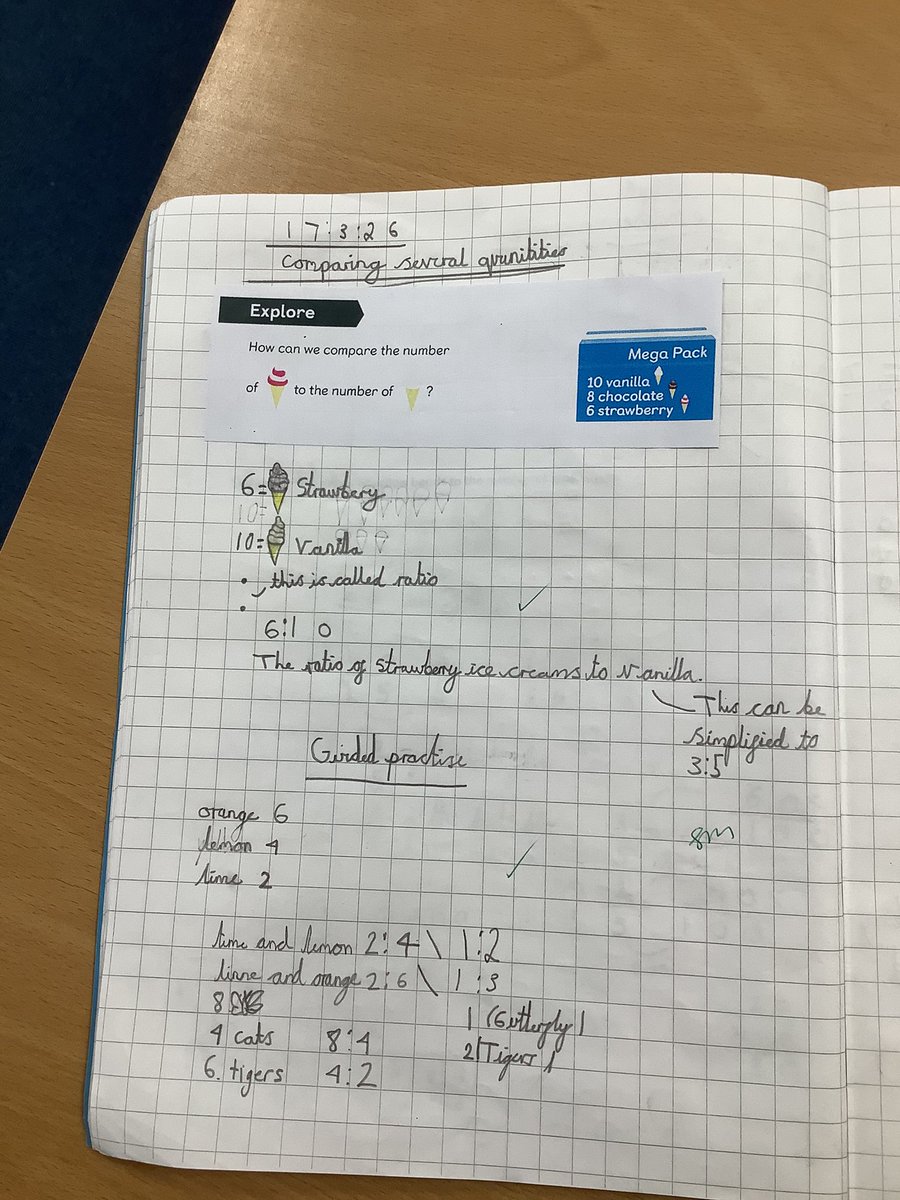 17:3:26
Comparing several qunitities
Explore
How can we compare the number
of to the number of ?
Mega Pack
10 vanilla
8 chocolate
6 strawberry
6= Strawbery
10=
10= Vanilla
this is called ratio
6:10
The ratio of Strawbery ice creams to Vanilla.
This can be
simplified to
3:5
Guided practise
orange 6
lemon 4
lime 2
lime and lemon 2:4 \ 1:2
lime and orange 2:6 \ 1:3
8
4 cats 8:4
6. tigers 4:2
1
2 (Tigers)